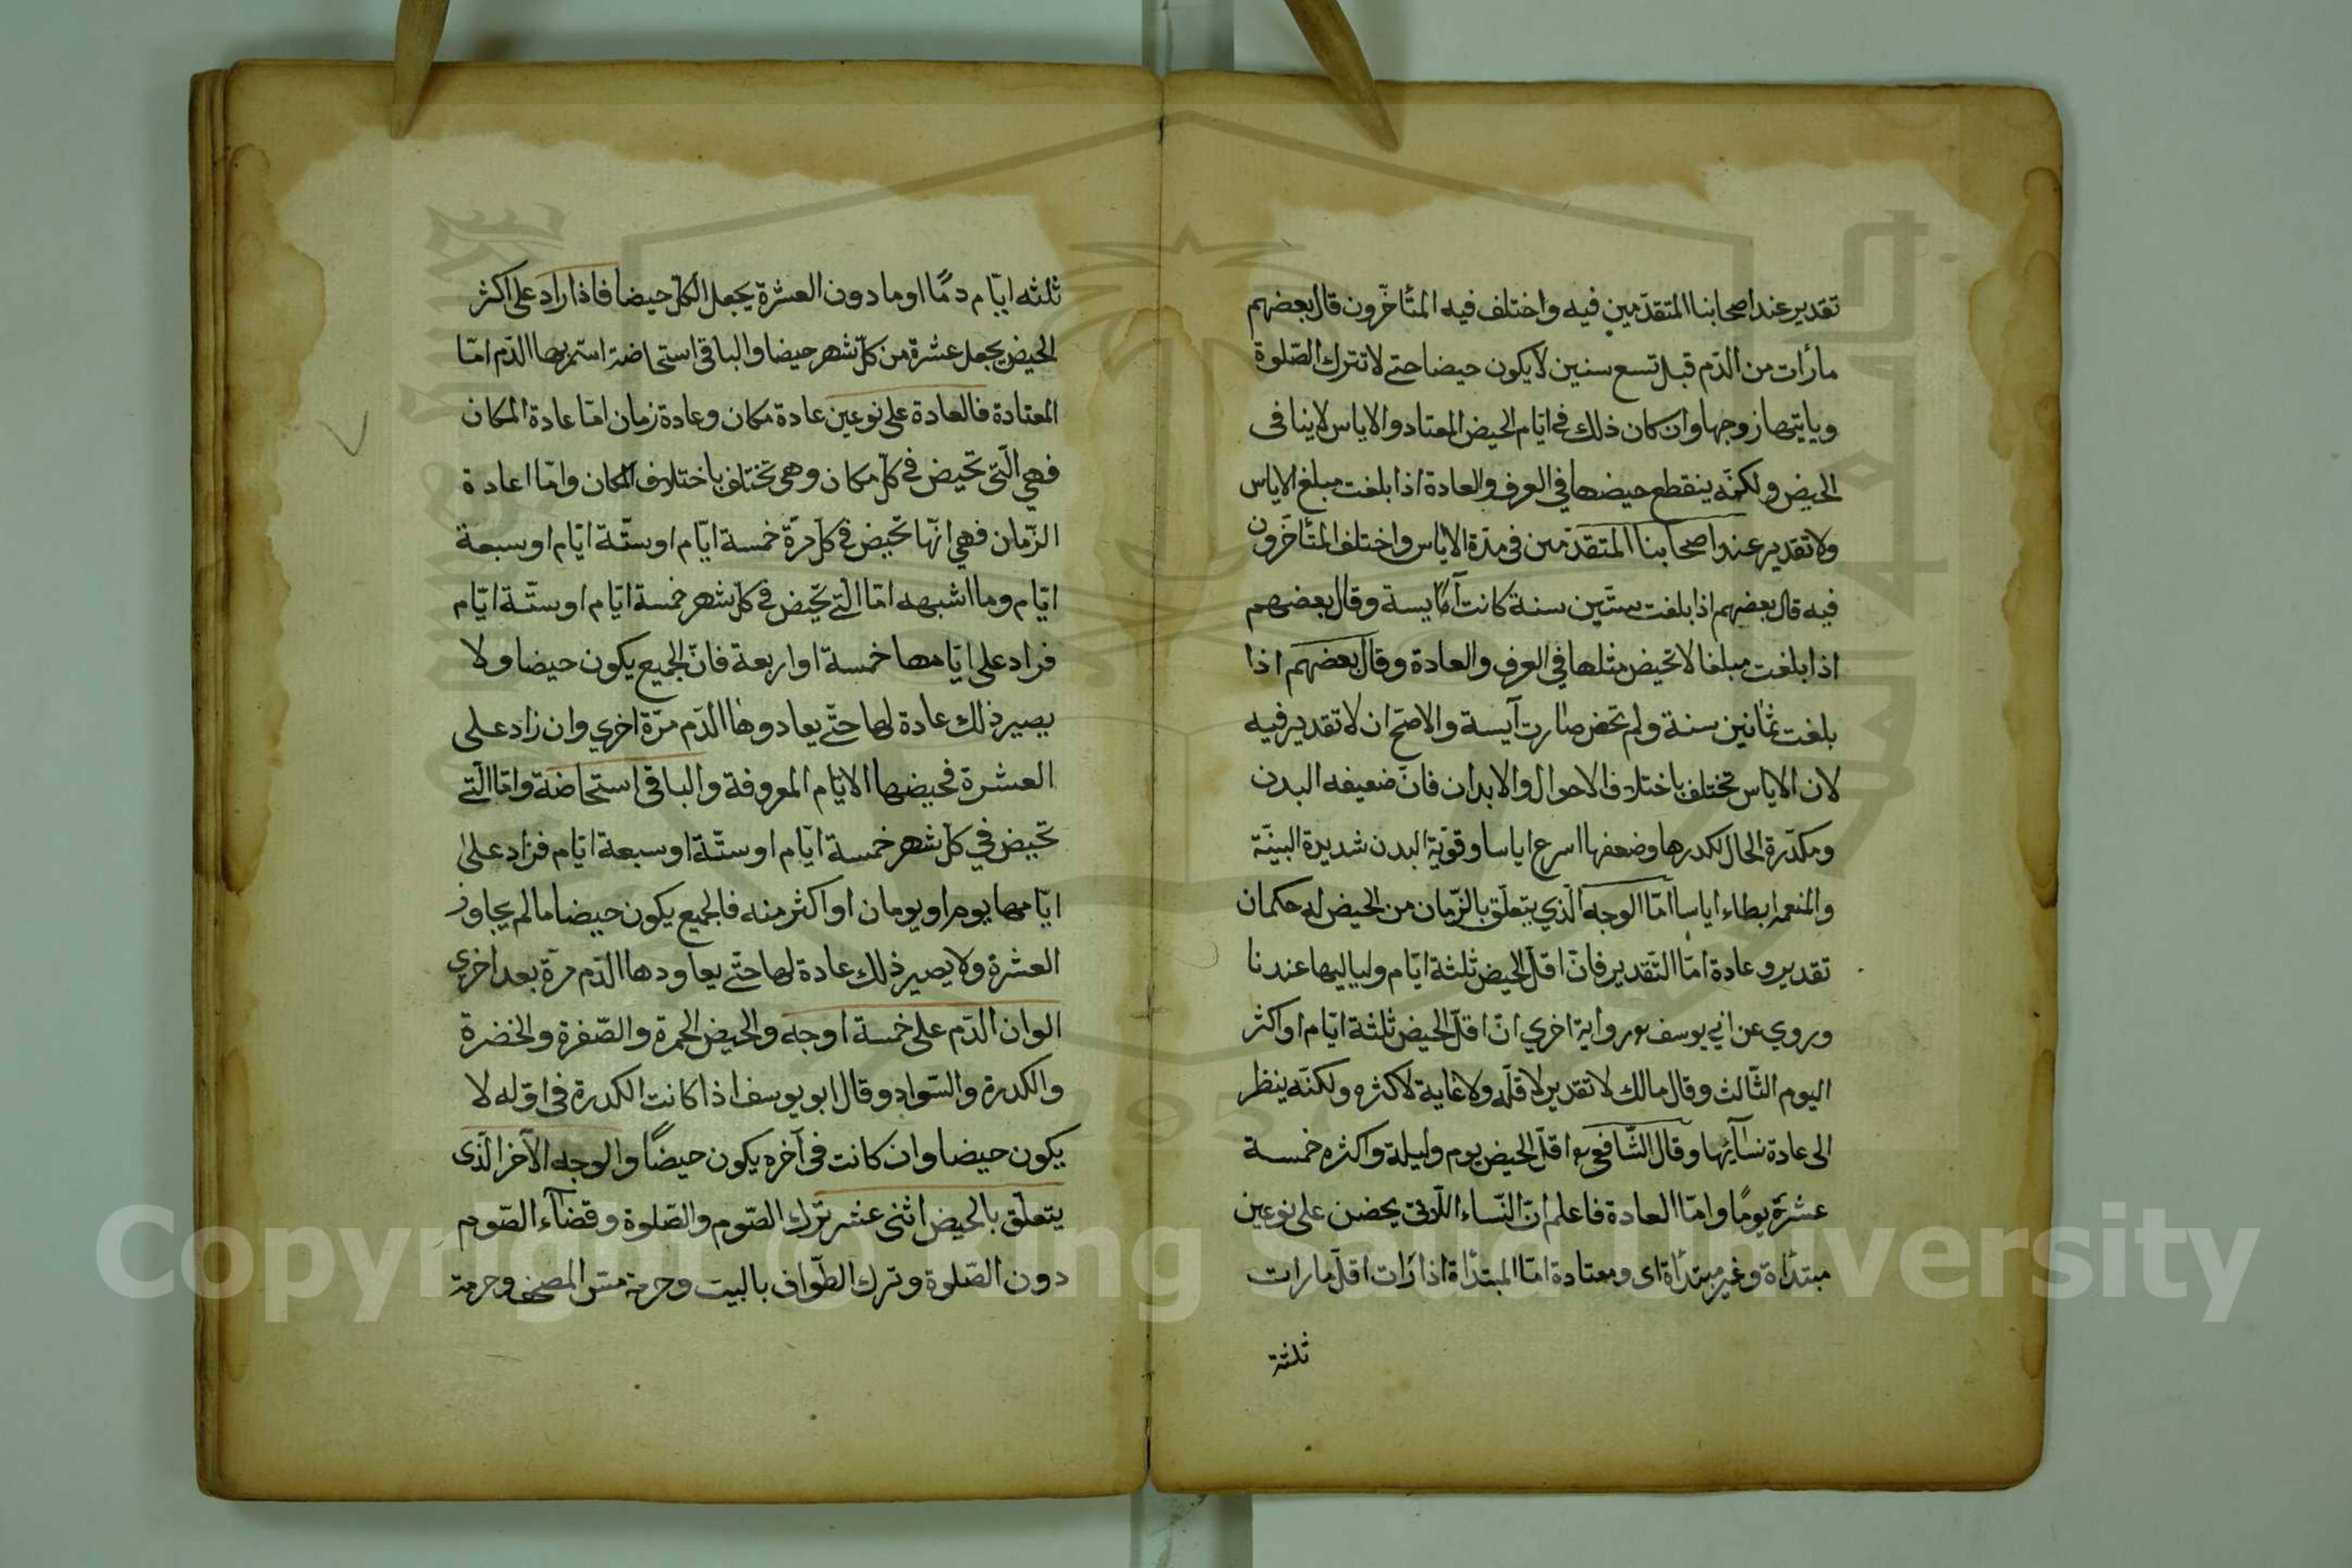 تقدير عند اصحابنا المتقدّمين فيه واختلف فيه المتأخّرون قال بعضهم
ما رأت من الدّم قبل تسع سنين لا يكون حيضا حتى لا تترك الصّلوة
وياتيها زوجها وان كان ذلك في ايّام الحيض المعتاد والاياس لا ينافى
الحيض ولكنّه ينقطع حيضها في العرف والعادة اذا بلغت مبلغ الاياس
ولا تقدير عند اصحابنا المتقدّمين في مدّة الاياس واختلف المتأخّرون
فيه قال بعضهم اذا بلغت ستّين سنة كانت آيسة وقال بعضهم
اذا بلغت مبلغا لا تحيض مثلها في العرف والعادة وقال بعضهم اذا
بلغت ثمانين سنة ولم تحض صارت آيسة والاصحّ ان لا تقدير فيه
لان الاياس تختلف باختلاف الاحوال والابدان فانّ ضعيفه البدن
ومكدّرة الحال لكدرها وضعفها اسرع اياسا وقويّة البدن شديدة البنيّة
والمنعمة ابطاء اياسا امّا الوجه الّذي يتعلّق بالزّمان من الحيض له حكمان
تقدير وعادة امّا التّقدير فانّ اقلّ الحيض ثلثة ايّام ولياليها عندنا
وروي عن ابي يوسف رواية اخري انّ اقلّ الحيض ثلثة ايّام او اكثر
اليوم الثّالث وقال مالك لا تقدير لاقلّه ولا غاية لاكثره ولكنّه ينظر
الى عادة نسآئها وقال الشّافعي اقلّ الحيض يوم وليلة واكثره خمسة
عشرة يومًا وامّا العادة فاعلم انّ النّساء اللّاتي يحضن على نوعين
مبتدأة وغير مبتدأة اى ومعتادة امّا المبتدأة اذا رأت اقلّ ما رات
ثلثة
ثلثه ايّام دمًا او ما دون العشرة يجعل الكلّ حيضا فاذا زاد على اكثر
الحيض يجعل عشرة من كلّ شهر حيضا والباقي استحاضة استمر بها الدّم امّا
المعتادة فالعادة على نوعين عادة مكان وعادة زمان امّا عادة المكان
فهي الّتي تحيض في كلّ مكان وهى تختلف باختلاف المكان وامّا اعادة
الزّمان فهي انّها تحيض في كلّ مرّة خمسة ايّام او ستّة ايّام او سبعة
ايّام وما اشبهه امّا الّتى تحيض في كلّ شهر خمسة ايّام او ستّة ايّام
فزاد على ايّامها خمسة او اربعة فانّ الجميع يكون حيضا ولا
يصير ذلك عادة لها حتّى يعادوها الدّم مرّة اخري وان زاد على
العشرة فحيضها الايّام المعروفة والباقى استحاضة وامّا الّتى
تحيض في كلّ شهر خمسة ايّام او ستّة او سبعة ايّام فزاد على
ايّامها يوم او يومان او اكثر منه فالجميع يكون حيضا ما لم يجاوز
العشرة ولا يصير ذلك عادة لها حتّى يعاودها الدّم مرّة بعد اخري
الوان الدّم على خمسة اوجه والحيض الحمرة والصّفرة والخضرة
والكدرة والسّواد وقال ابو يوسف اذا كانت الكدرة في اوّله لا
يكون حيضا وان كانت فى آخره يكون حيضًا والوجه الآخر الّذى
يتعلّق بالحيض اثنى عشر ترك الصّوم والصّلوة وقضآء الصّوم
دون الصّلوة وترك الطّواف بالبيت وحرمة مسّ المصحف وحرمة
Copyright © King Saud University
1957